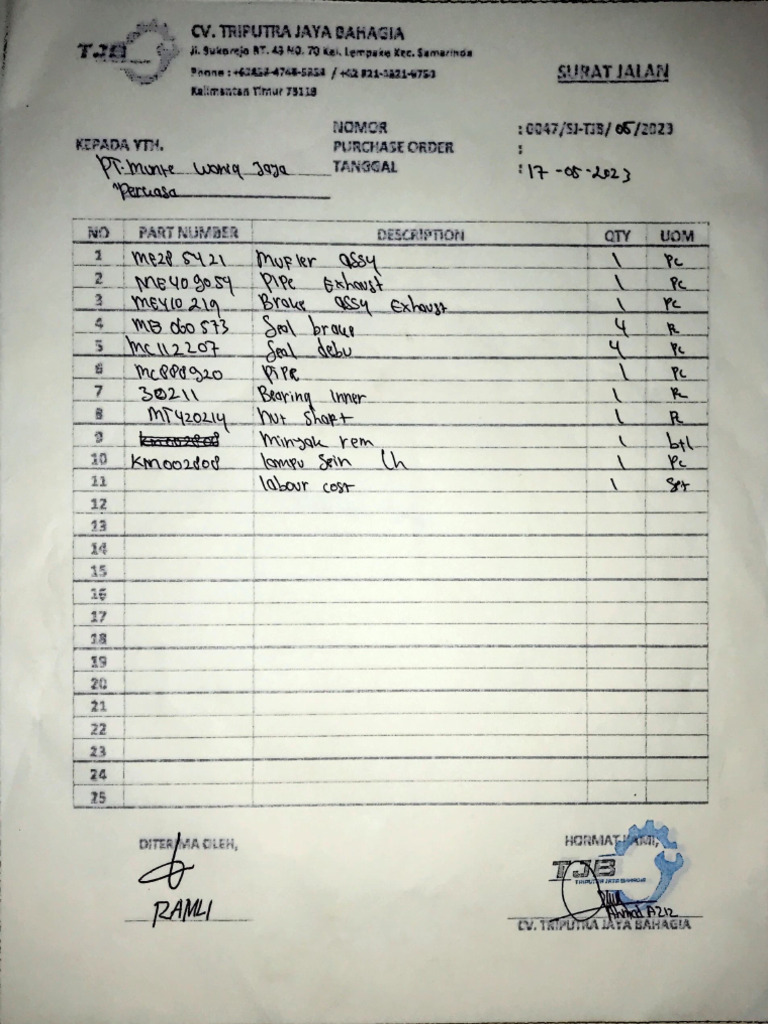 TJB
CV. TRIPUTRA JAYA BAHAGIA
Jl. Sukorejo RT. 43 NO. 70 Kel. Lempake Kec. Samarinda
Phone :
Kalimantan Timur 75119
SURAT JALAN
KEPADA YTH.
PT. Munte Waniq Jaya
Perkasa
NOMOR : 0047/SJ-TJB/05/2023
PURCHASE ORDER :
TANGGAL : 17-05-2023
NO PART NUMBER DESCRIPTION QTY UOM
1 ME285421 Mufler assy 1 Pc
2 ME409054 Pipe Exhaust 1 Pc
3 ME410219 Brake assy Exhaust 1 Pc
4 MB060573 Seal brake 4 Pc
5 MC112207 Seal debu 4 Pc
6 MC888920 Pipe 1 Pc
7 30211 Bearing Inner 1 Pc
8 MT420214 nut shaft 1 Pc
9 minyak rem 1 btl
10 KM002808 lampu sein Lh 1 Pc
11 labour cost 1 Set
12
13
14
15
16
17
18
19
20
21
22
23
24
25
DITERIMA OLEH,
RAMLI
HORMAT KAMI,
TJB
TRIPUTRA JAYA BAHAGIA
Ahmad Aziz
CV. TRIPUTRA JAYA BAHAGIA